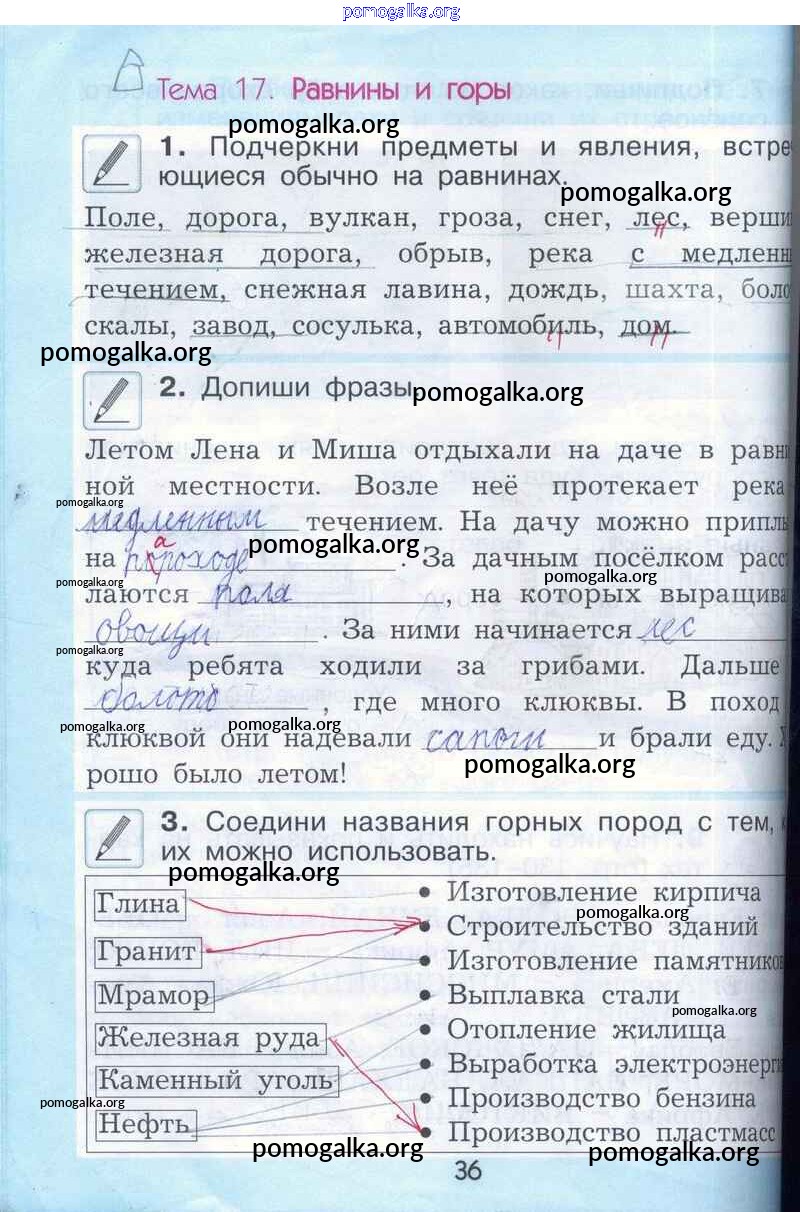 pomogalka.org
Тема 17. Равнины и горы
pomogalka.org
1. Подчеркни предметы и явления, встре
ющиеся обычно на равнинах.
pomogalka.org
Поле, дорога, вулкан, гроза, снег, лес, верши
железная дорога, обрыв, река с медленн
течением, снежная лавина, дождь, шахта, боло
скалы, завод, сосулька, автомобиль, дом.
pomogalka.org
2. Допиши фразы.
pomogalka.org
Летом Лена и Миша отдыхали на даче в равни
ной местности. Возле неё протекает река
pomogalka.org
медленным течением. На дачу можно приплы
pomogalka.org
на пароходе . За дачным посёлком расст
pomogalka.org
pomogalka.org
лаются поля , на которых выращива
овощи . За ними начинается лес
pomogalka.org
куда ребята ходили за грибами. Дальше
болото , где много клюквы. В поход
pomogalka.org
pomogalka.org
клюквой они надевали сапоги и брали еду. Х
pomogalka.org
рошо было летом!
3. Соедини названия горных пород с тем,
их можно использовать.
pomogalka.org
Глина
Гранит
Мрамор
Железная руда
Каменный уголь
Нефть
• Изготовление кирпича
pomogalka.org
• Строительство зданий
• Изготовление памятников
• Выплавка стали
pomogalka.org
• Отопление жилища
• Выработка электроэнерги
• Производство бензина
• Производство пластмасс
pomogalka.org
pomogalka.org
pomogalka.org
36